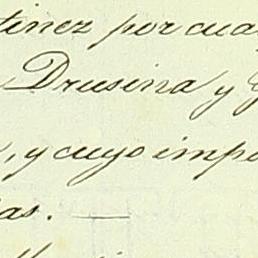 tinez por cua
Drusina y
, y cuyo impo
as.